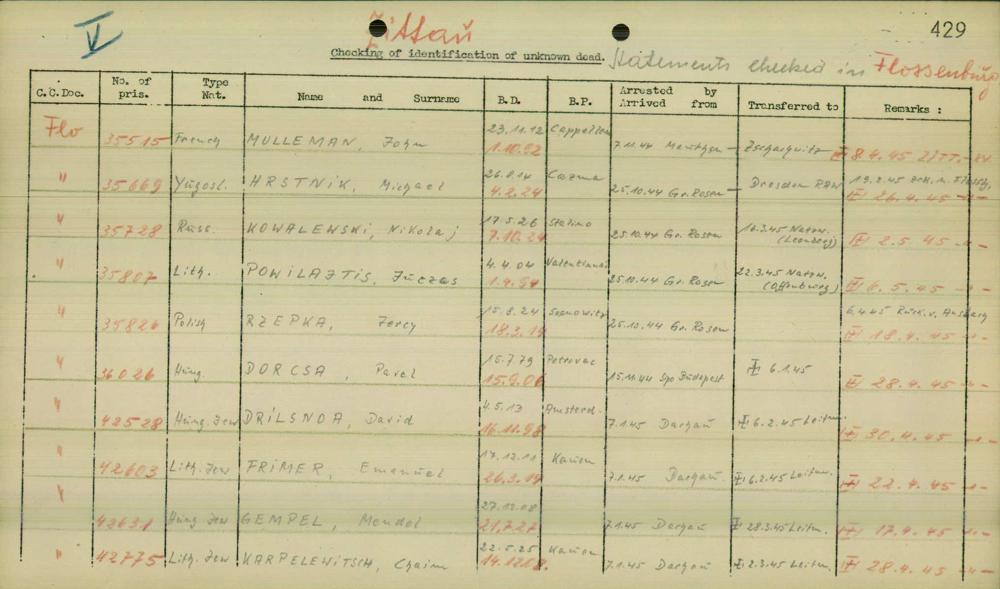 V Zittau 429
Checking of identification of unknown dead. Statements checked in Flossenbürg
C.C.Doc. No. of pris. Type Nat. Name and Surname B.D. B.P. Arrested by Arrived from Transferred to Remarks :
23.11.12 Cappellen
Flo 35515 French MULLEMAN, John 1.10.92 7.11.44 8.4.45 ZITT.
26.8.14 Cazma Dresden RAW
" 35669 Yugosl. HRSTNIK, Michael 4.2.24 25.10.44 Gr. Rosen III 26.4.45 -"-
17.5.26 Stalino 16.3.45 Natzw.
" 35728 Russ. KOWALEWSKI, Nikolaj 7.10.24 25.10.44 Gr. Rosen (Leonberg) III 2.5.45 -"-
4.4.04 22.3.45 Natzw.
" 35807 Lith. POWILAJTIS, Juczas 25.10.44 Gr. Rosen (Offenburg) III 6.5.45 -"-
15.8.24 Sosnowitz 6.4.45 Rück.v. Ansbach
" 35826 Polish RZEPKA, Jercy 18.3.14 25.10.44 Gr. Rosen III 18.4.45 -"-
15.7.79 Petrovac
" 36026 Hung. DORCSA, Pavel 15.9.06 15.11.44 Spo Budapest 6.1.45 III 28.4.45 -"-
4.5.13 Amsterd.
" 42528 Hung. Jew DRILSNDA, David 16.11.98 7.1.45 Dachau 6.2.45 Leitm. III 30.4.45 -"-
17.12.11 Kauen
" 42603 Lith. Jew FRIMER, Emanuel 26.3.14 7.1.45 Dachau 6.2.45 Leitm. III 22.4.45 -"-
27.12.08
" 42631 Hung. Jew GEMPEL, Mendel 21.7.27 7.1.45 Dachau 28.3.45 Leitm. III 17.4.45 -"-
22.5.25 Kauen
" 42775 Lith. Jew KARPELEWITSCH, Chaim 14.12.08. 7.1.45 Dachau 2.3.45 Leitm. III 28.4.45 -"-